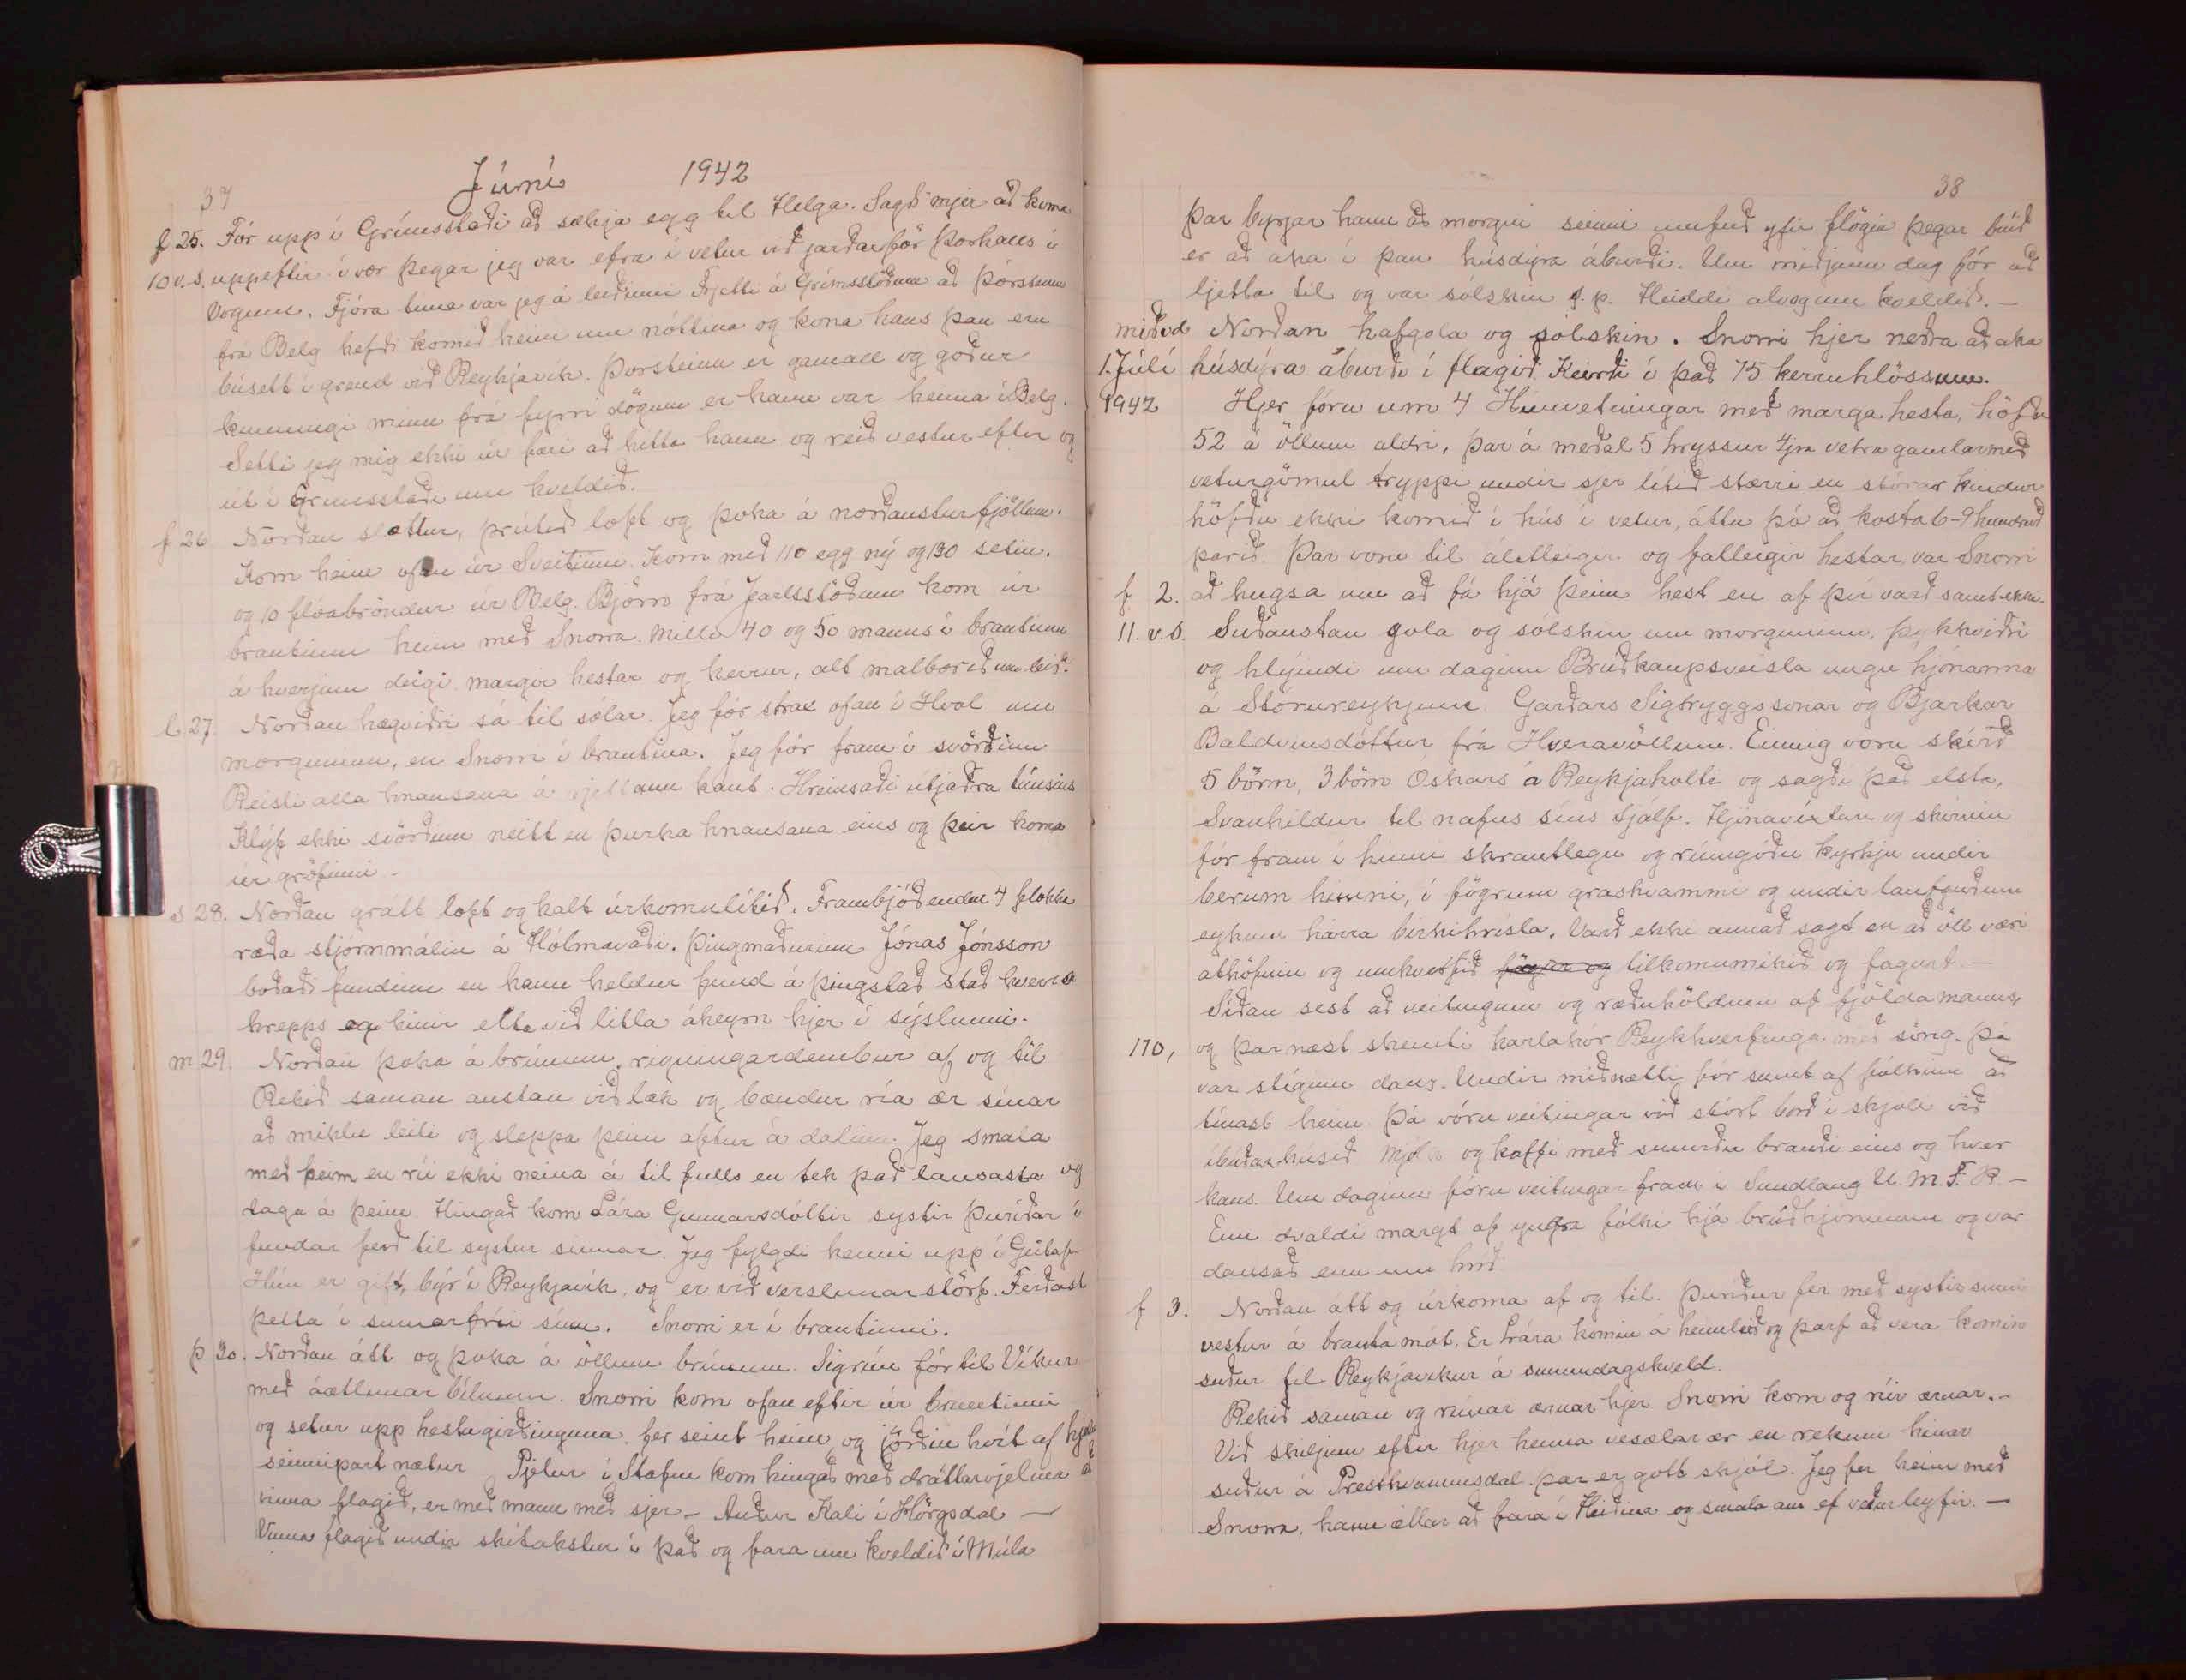 37 Júní 1942
f 25. Fór upp í Grímsstaði að sækja egg til Helga. Sagði mjer að koma
10 v.s. uppeftir í vor þegar jeg var efra í vetur við jarðarför Þorhalls í
Vogum. Fjóra tíma var jeg á leiðinni Frjetti á Grímsstöðum að Þorsteinn
frá Belg hefði komið heim um nóttina og kona hans þau eru
búsett í grend við Reykjavík. Þorsteinn er gamall og góður
kunningi minn frá fyrri dögum er hann var heima í Belg.
Setti jeg mig ekki úr færi að hitta hann og reið vestur eftir og
út í Grímsstaði um kveldið.
f 26 Norðan slattur, þrútið loft og þoka á norðausturfjöllum.
Kom heim ofan úr Sveitinni. Kom með 110 egg ný og 130 setin.
og 10 flóabröndur úr Belg. Björn frá Jarlsstöðum kom úr
brautinni heim með Snorra. Milli 40 og 50 manns í brautinni
á hverjum deigi margir hestar og kerrur, alt malborið um leið.
l 27. Norðan hægviðri sá til sólar. Jeg fór strax ofan í Hvol um
morguninn, en Snorri í brautina. Jeg fór fram í svörðinn
Reisti alla hnausana á rjettann kant. Hreinsaði útjaðra túnsins
Klýf ekki svörðinn neitt en þurka hnausana eins og þeir koma
úr gröfinni.
s 28. Norðan grátt loft og kalt úrkomulítið. Frambjóðendur 4 flokka
ræða stjórnmálin á Hólmavaði. Þingmaðurinn Jónas Jónsson
boðaði fundinn en hann heldur fund á þingstað stað hvers
hrepps og hinir elta við litla áheyrn hjer í sýslunni.
m 29. Norðan þoka á brúnum, rigningardembur af og til
Rekið saman austan við læk og bændur ría ær sínar
að miklu leiti og sleppa þeim aftur á dalinn. Jeg smala
með þeim en ríi ekki neina á til fulls en tek það lausasta og
laga á þeim. Hingað kom Lára Gunnarsdóttir systir Þuríðar í
fundar ferð til systur sinnar. Jeg fylgdi henni upp í Geitaf.
Hún er gift, býr í Reykjavík, og er við verslunarstörf. Ferðast
þetta í sumarfríi sínu. Snorri er í brautinni.
þ 30. Norðan átt og þoka á öllum brúnum. Sigrún fór til Víkur
með áætlunar bílnum. Snorri kom ofan eftir úr brautinni
og setur upp hestagirðinguna. fer seint heim, og jörðin hvít af hjelu
seinnipart nætur Pjetur í Stafni kom hingað með dráttarvjelina að
vinna flagið, er með mann með sjer - Auður Kali í Hörgsdal -
Vinna flagið undir skítakstur í það og fara um kveldið í Múla
38
Þar byrjar hann að morgni seinni umferð yfir flögin þegar búið
er að aka í þau húsdýra áburði. Um miðjann dag fór að
ljetta til og var sólskin s.p. Heiddi alvegum kveldið. -
miðvd Norðan hafgola og sólskin. Snorri hjer neðra að aka
1. Júlí húsdýra áburði í flagið. Keirði í það 75 kerruhlössum.
1942 Hjer fóru um 4 Húnvetningar með marga hesta, höfðu
52 á öllum aldri, þar á meðal 5 hryssur 4ja vetra gamlar með
veturgömul tryppi undir sjer lítið stærri en stórar kindur
höfðu ekki komið í hús í vetur, áttu þó að kosta 6-9 hundruð
parið. Þar voru til álitlegir og fallegir hestar var Snorri
f 2. að hugsa um að fá hjá þeim hest en af því varð samt ekki.
11. v.s. Suðaustan gola og sólskin um morguninn, þykkviðri
og hlýindi um daginn Brúðkaupsveisla ungu hjónanna
á Stórureykjum Garðars Sigtryggssonar og Bjarkar
Baldvinsdóttur frá Hveravöllum. Einnig voru skírð
5 börn, 3 börn Óskars á Reykjaholti og sagði það elsta,
Svanhildur til nafns síns sjálf. Hjónavíxlan og skírnin
fór fram í hinni skrautlegu og rúmgóðu kyrkju undir
berum himni, í fögrum grashvammi og undir laufguðum
eykum hárra birkihrísla. Varð ekki annað sagt en að öll væri
athöfnin og umhverfið tilkomumikið og fagurt -
Síðan sest að veitingum og ræðuhöldum af fjölda manns,
170, og þarnæst skemti karlakór Reykhverfinga með söng. Þá
var stiginn dans. Undir miðnætti fór sumt af fólkinu að
tínast heim. Þá vóru veitingar við stórt borð í skjóli við
íbúðarhúsið Mjólk og kaffi með smurðu brauði eins og hver
kaus. Um daginn fóru veitingar fram í Sundlaug U.M.F.R. -
Enn dvaldi margt af yngra fólki hjá brúðhjónunum og var
dansað enn um hríð.
f 3. Norðan átt og úrkoma af og til. Þuríður fer með systir sinni
vestur á brauta mót. Er Lára komin á heimleið og þarf að vera komin
suður til Reykjavíkur á sunnudagskveld.
Rekið saman og rúnar ærnar hjer Snorri kom og rúir ærnar. -
Við skiljum eftir hjer heima vesælar ær en rekum hinar
suður á Presthvammsdal. Þar er gott skjól. Jeg fer heim með
Snorra, hann ætlar að fara í Heiðina og smala ám ef veður leyfir. -